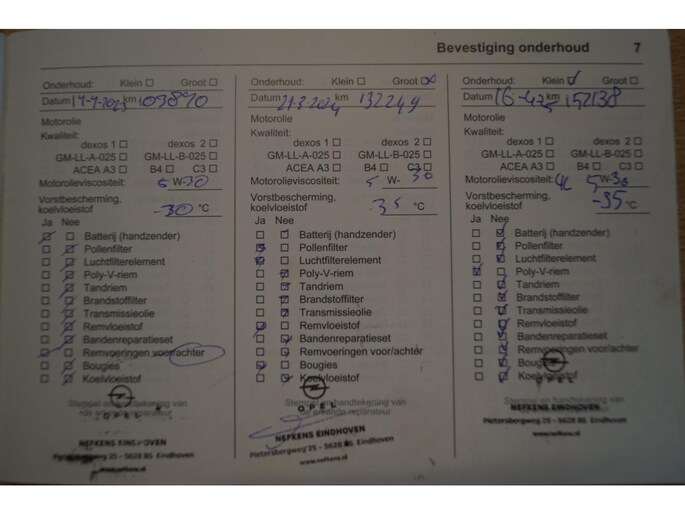 Bevestiging onderhoud 7
Onderhoud: Klein ☐ Groot ☐
Datum km 109890
Motorolie
Kwaliteit:
dexos 1 ☐ dexos 2 ☐
GM-LL-A-025 ☐ GM-LL-B-025 ☐
ACEA A3 ☐ B4 ☐ C3 ☐
Motorolieviscositeit: 5 W-30
Vorstbescherming,
koelvloeistof -30 °C
Ja Nee
Batterij (handzender)
Pollenfilter
Luchtfilterelement
Poly-V-riem
Tandriem
Brandstoffilter
Transmissieolie
Remvloeistof
Bandenreparatieset
Remvoeringen voor/achter
Bougies
Koelvloeistof
OPEL
NEFKENS EINDHOVEN
Eindhoven
www.nefkens.nl
Onderhoud: Klein ☐ Groot ☒
Datum 21-3-2024 km 132249
Motorolie
Kwaliteit:
dexos 1 ☐ dexos 2 ☐
GM-LL-A-025 ☐ GM-LL-B-025 ☐
ACEA A3 ☐ B4 ☐ C3 ☐
Motorolieviscositeit: 5 W- 30
Vorstbescherming,
koelvloeistof -35 °C
Ja Nee
Batterij (handzender)
Pollenfilter
Luchtfilterelement
Poly-V-riem
Tandriem
Brandstoffilter
Transmissieolie
Remvloeistof
Bandenreparatieset
Remvoeringen voor/achter
Bougies
Koelvloeistof
Stempel en handtekening van
de erkende reparateur
OPEL
NEFKENS EINDHOVEN
Pietersbergweg 25 - 5628 BS Eindhoven
www.nefkens.nl
Onderhoud: Klein ☑ Groot ☐
Datum 16-4-25 km 152138
Motorolie
Kwaliteit:
dexos 1 ☐ dexos 2 ☐
GM-LL-A-025 ☐ GM-LL-B-025 ☐
ACEA A3 ☐ B4 ☐ C3 ☐
Motorolieviscositeit: 5 W-30
Vorstbescherming,
koelvloeistof -35 °C
Ja Nee
Batterij (handzender)
Pollenfilter
Luchtfilterelement
Poly-V-riem
Tandriem
Brandstoffilter
Transmissieolie
Remvloeistof
Bandenreparatieset
Remvoeringen voor/achter
Bougies
Koelvloeistof
Stempel en handtekening van
de erkende reparateur
OPEL
NEFKENS EINDHOVEN
Pietersbergweg 25 - 5628 BS Eindhoven
www.nefkens.nl